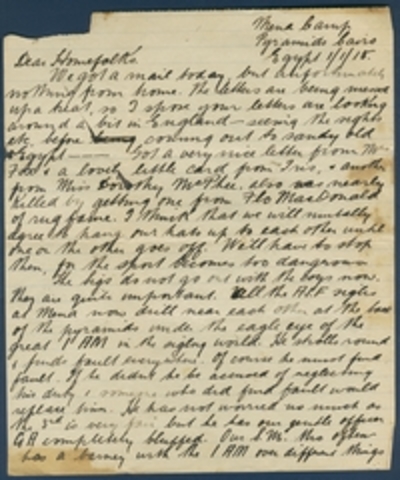 Mena Camp
Pyramids Cairo
Egypt 1/1/15.
Dear Homefolks.
We got a mail today, but unfortunately
nothing from home. The letters are being messed
up a treat, so I spose your letters are looking
around a bit in England — seeing the sights
etc. before coming out to sandy old
Egypt Got a very nice letter from Mrs
Fox & a lovely little card from Iris, & another
from Miss Dorothy McPhee, also was nearly
killed by getting one from Flo MacDonald
of rug fame. I think that we will mutually
agree to hang our hats up to each other until
one or the other goes off. We'll have to stop
then, for the sport becomes too dangerous
The sigs do not go out with the boys now.
They are quite important. All the AIF sigs
at Mena now drill near each other at the base
of the pyramids under the eagle eye of the
great I AM in the sigling world. He strolls round
& finds fault everywhere, of course he must find
fault. If he didn't he be accused of neglecting
his duty & someone who did find fault would
replace him. He has not worried us much as
the 3rd is very fair but he has our gentle officer
GA completely bluffed. Our S.M. tho often
has a barney with the I AM over different things